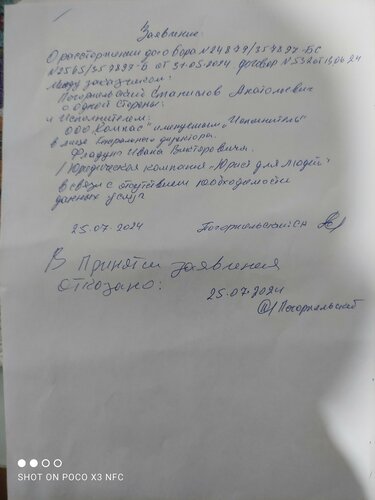 Заявление:
О расторжении договора №24879/357897-БС
№2565/357897-Б от 31.05.2024 договор №532 от 13.06.24
между заказчиком:
Погорпельский Станислов Анатольевич
с одной стороны:
и Исполнителем:
ООО "Компас" именуемым "Исполнитель"
в лице Генерального директора.
Фладунг Ивана Викторовича.
/Юридическая компания "Юрист для Людей"
в связи с отсутствием необходимости
данных услуг
25.07.2024 Погорпельский СА
В Принятии заявления
отказано:
25.07.2024
/Погорпельский
SHOT ON POCO X3 NFC